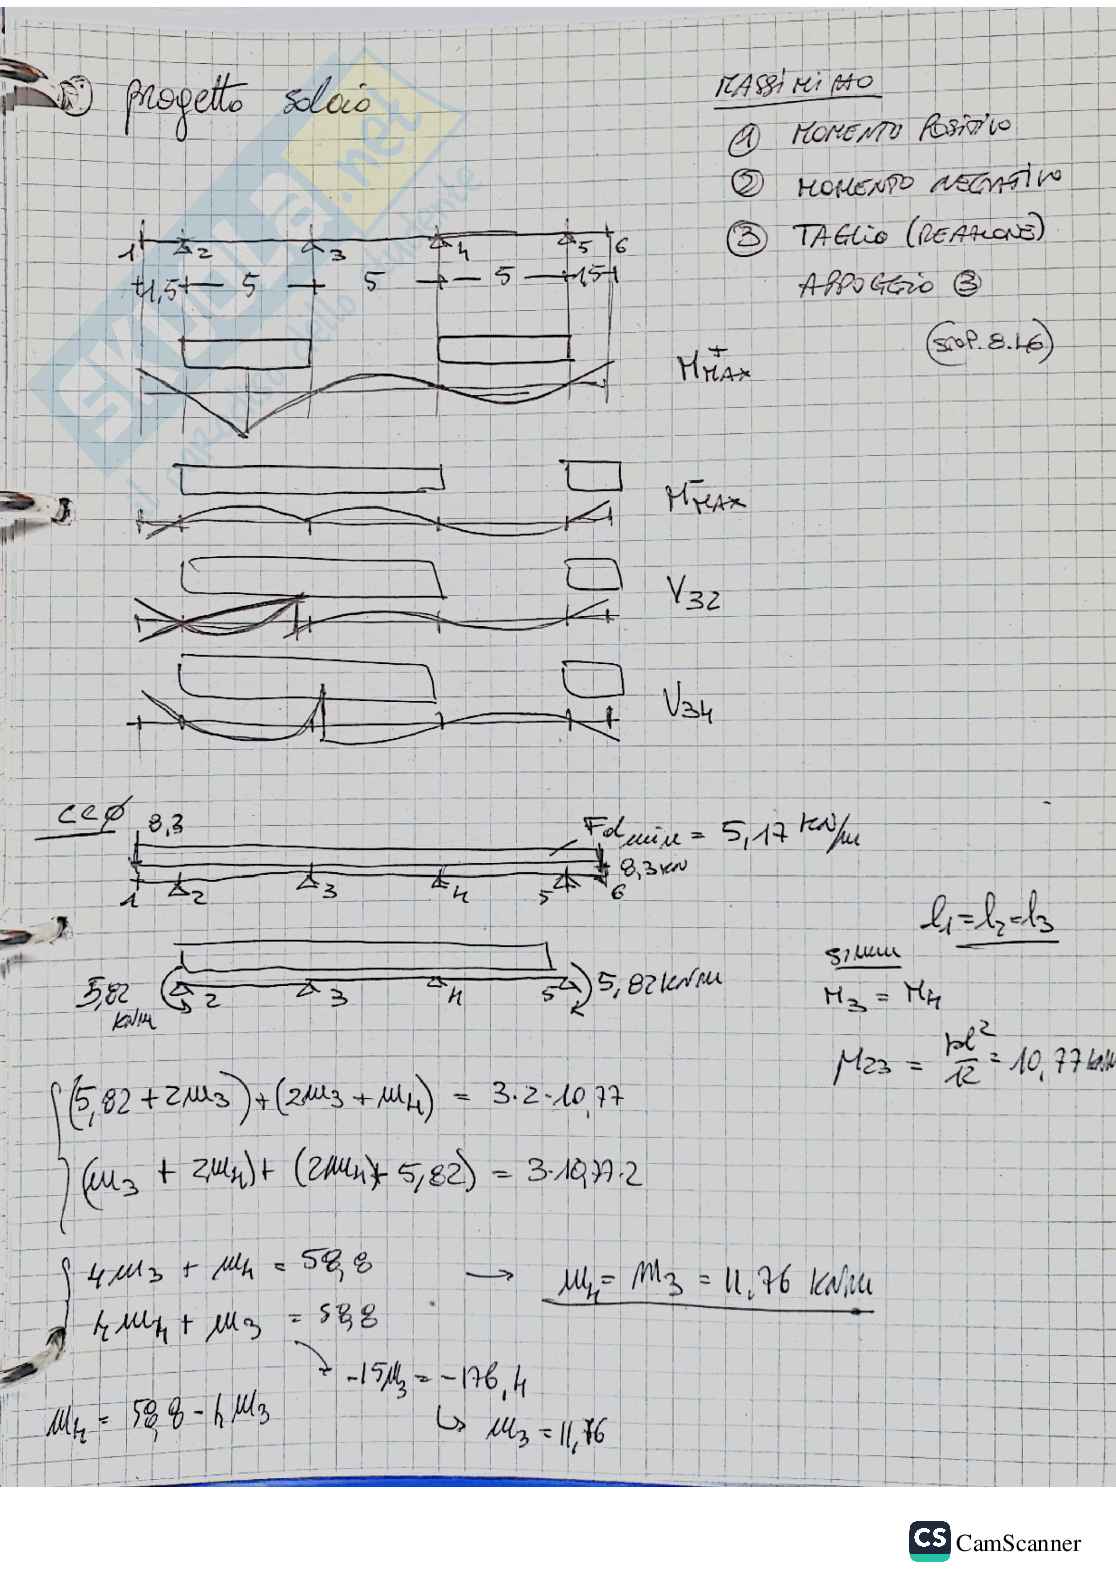 progetto solaio
MASSIMIZZO
① MOMENTO POSITIVO
② MOMENTO NEGATIVO
③ TAGLIO (REAZIONE)
APPOGGIO ③
1 2 3 4 5 6
1,5 5 5 5 1,5
M⁺MAX
M⁻MAX
V32
V34
SKUOLA.net
CC∅
8,3
Fd min = 5,17 KN/m
8,3 KN
1 2 3 4 5 6
l1 = l2 = l3
5,82 KNm
2 3 4 5
5,82 KNm
SIMM
M3 = M4
M23 = pl²/12 = 10,77 KNm
(5,82 + 2M3) + (2M3 + M4) = 3·2·10,77
(M3 + 2M4) + (2M4 + 5,82) = 3·10,77·2
4M3 + M4 = 58,8
→ M4 = M3 = 11,76 KNm
4M4 + M3 = 58,8
-15M3 = -176,4
M4 = 58,8 - 4M3
M3 = 11,76
CS CamScanner